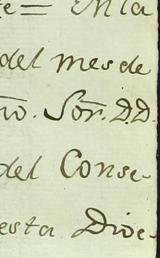 e= En la
del mes de
mo. Sor. D.D.
del Conse-
esta Dioe-